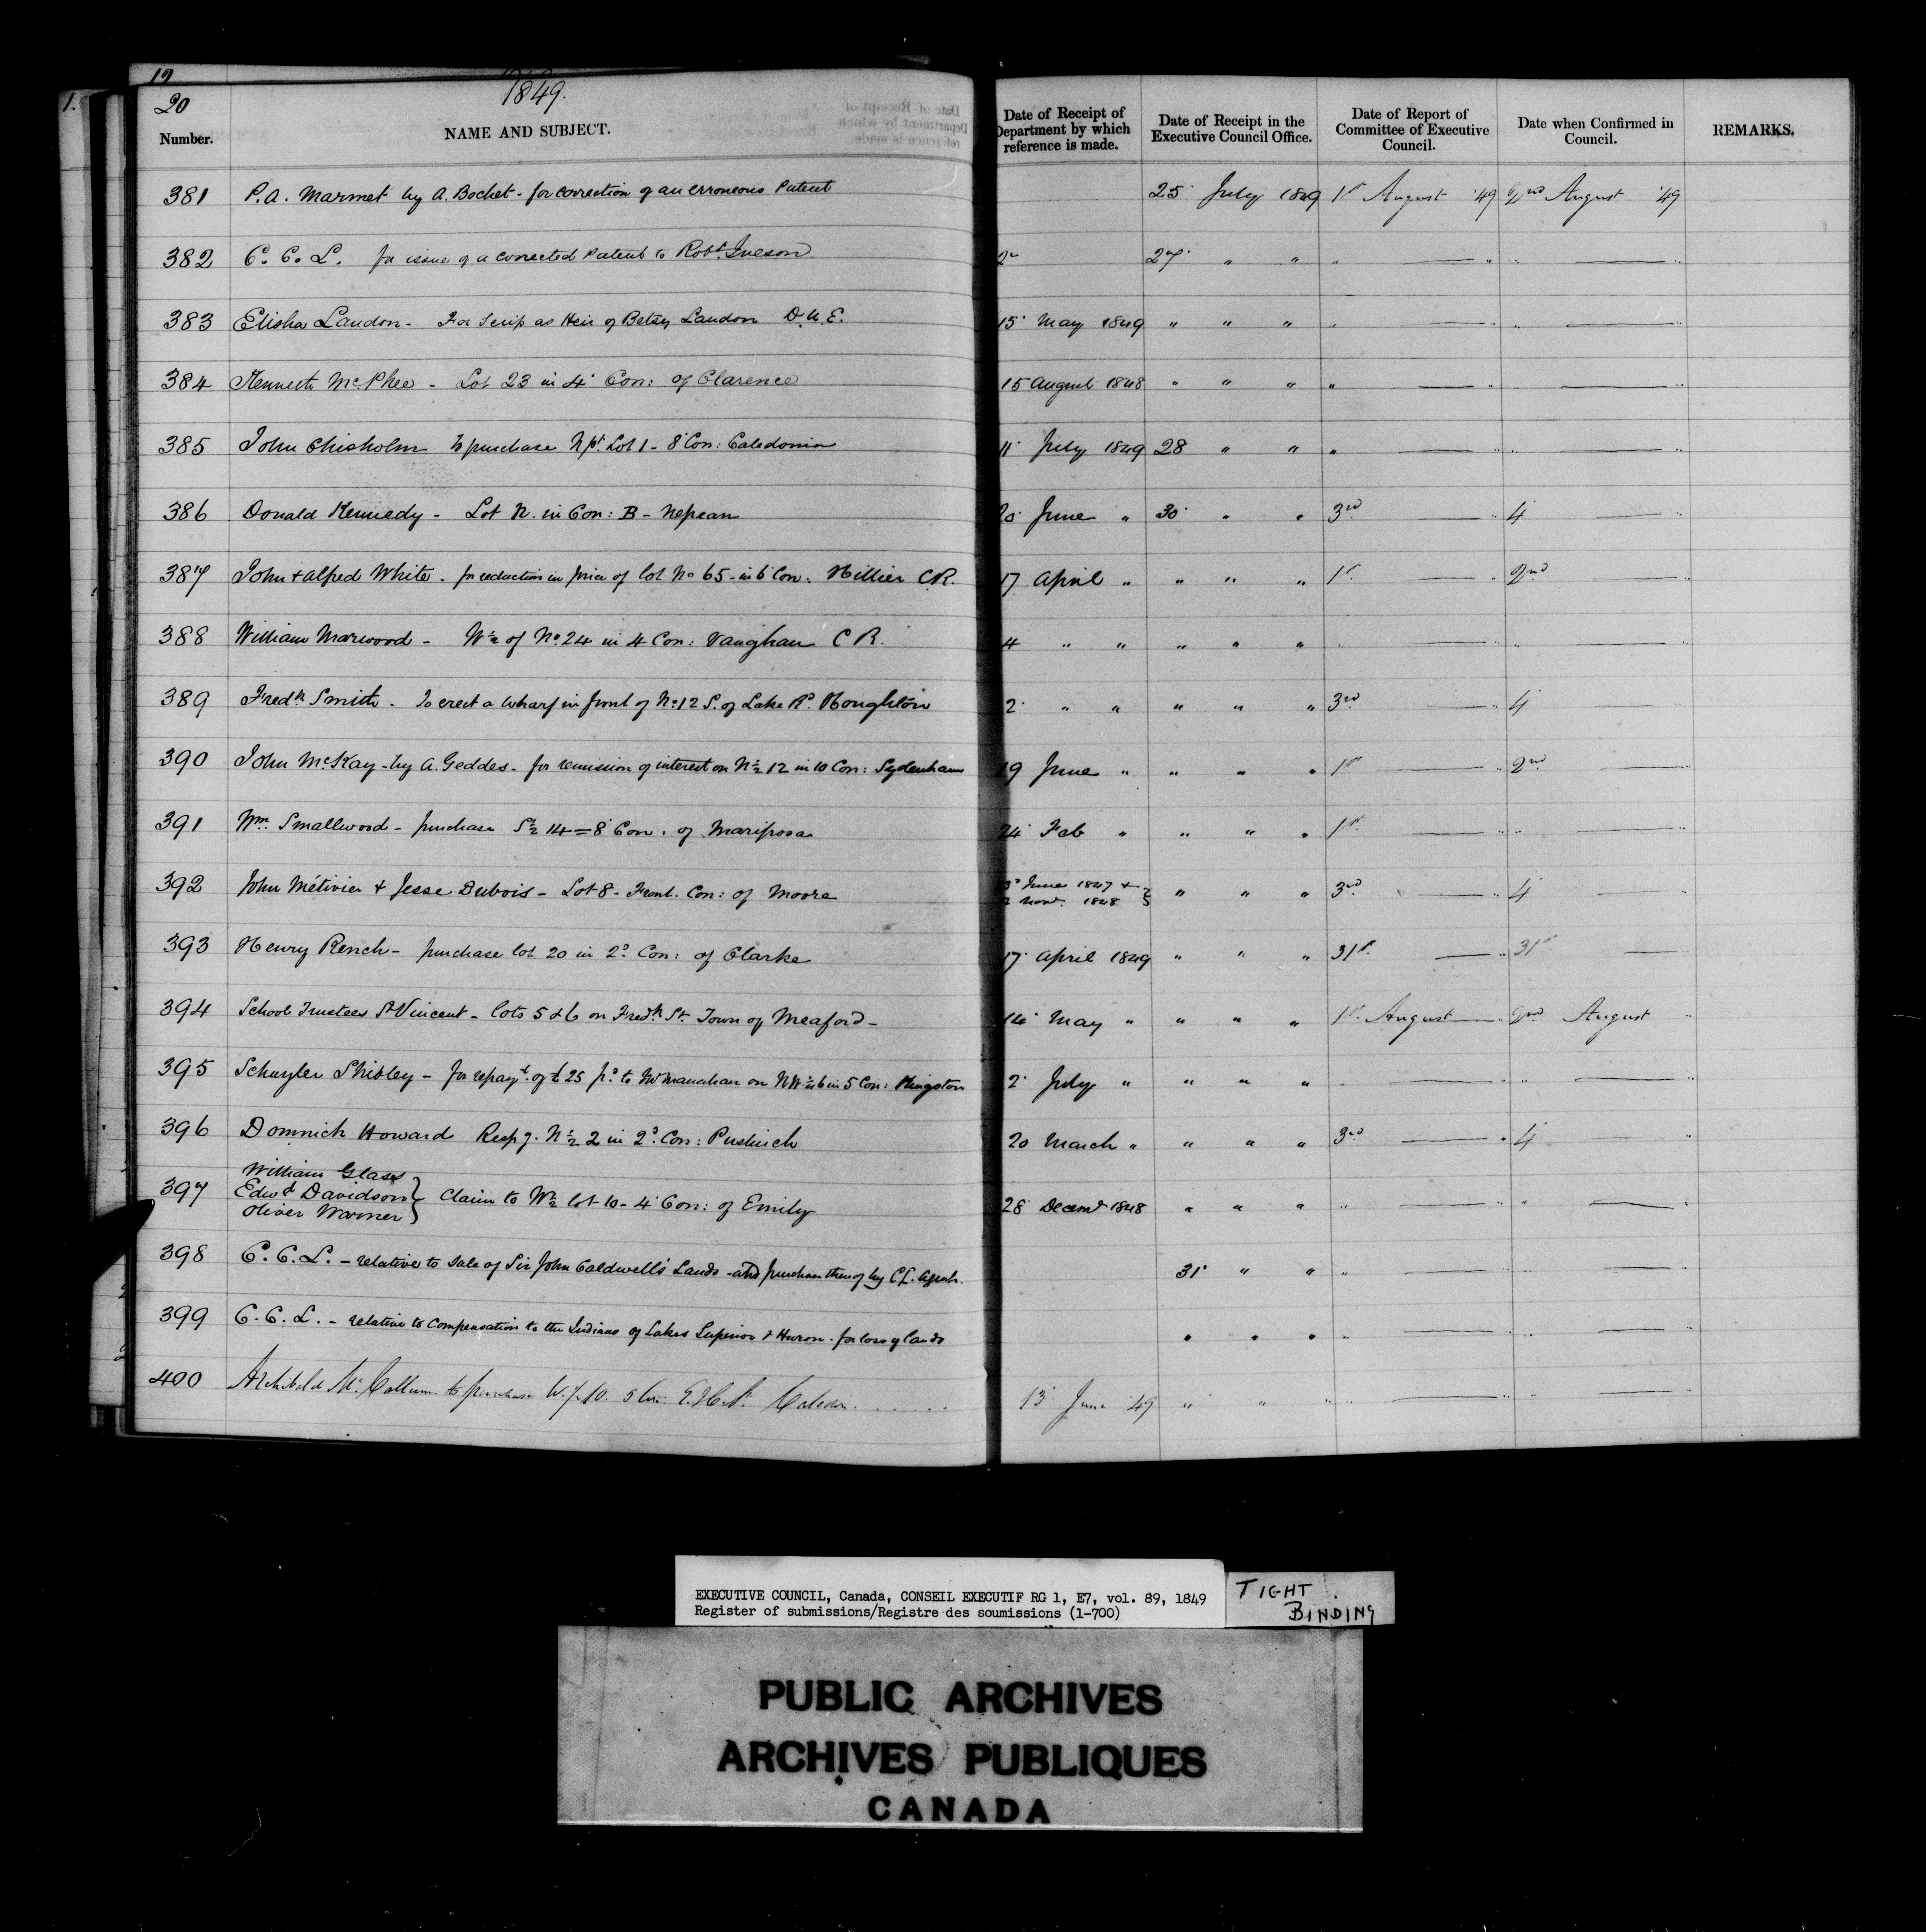 19
20
1849.
Number. NAME AND SUBJECT. Date of Receipt of Department by which reference is made. Date of Receipt in the Executive Council Office. Date of Report of Committee of Executive Council. Date when Confirmed in Council. REMARKS.
381 P. A. Marmet by A. Bochet - for correction of an erroneous Patent 25 July 1849 1st August '49 2nd August '49
382 C. C. L. for issue of a corrected Patent to Robt. Iveson 27 " " " — " " — "
383 Elisha Landon - For Scrip as Heir of Betsy Landon D.U.E. 15 May 1849 " " " " — " " — "
384 Kenneth McPhee - Lot 23 in 4 Con: of Clarence 15 August 1848 " " " " — " " — "
385 John Chisholm to purchase N pt. Lot 1 - 8 Con: Caledonia 11 July 1849 28 " " " — " " — "
386 Donald Kennedy - Lot N. in Con: B - Nepean 20 June " 30 " " 3rd — " 4 — "
387 John & Alfred White - for reduction in price of lot No 65 - in 6 Con: Hillier C.R. 17 April " " " " 1st — " 2nd — "
388 William Marwood - W ½ of No. 24 in 4 Con: Vaughan C R. 4 " " " " " " — " " — "
389 Fredk Smith - To erect a wharf in front of No. 12 S. of Lake Rd. Houghton 2 " " " " " 3rd — " 4 — "
390 John McKay - by A. Geddes - for remission of interest on N ½ 12 in 10 Con: Sydenham 19 June " " " " 1st — " 2nd — "
391 Wm Smallwood - purchase S ½ 14 = 8 Con: of Mariposa 24 Feb " " " " 1st — " " — "
392 John Métivier & Jesse Dubois - Lot 8 - Front. Con: of Moore June 1847 & Novr. 1848 } " " " 3rd — " 4 — "
393 Henry Rench - purchase lot 20 in 2d Con: of Clarke 17 April 1849 " " " 31st — " 31st —
394 School Trustees St Vincent - lots 5 & 6 on Fredk St. Town of Meaford - 14 May " " " " 1st August — " 2nd August "
395 Schuyler Shibley - for repayt. of £25 pd. to Mr Manahan on 6 in 5 Con: Kingston 2 July " " " " " — " " — "
396 Domnick Howard Respg. N ½ 2 in 2d Con: Puslinch 20 March " " " " 3rd — " 4 — "
William Glass
397 Edwd Davidson } Claim to W ½ lot 10 - 4 Con: of Emily 28 Decemr 1848 " " " " — " " — "
Oliver Warner
398 C. C. L. - relative to Sale of Sir John Caldwell's Lands - and purchase thereof by C L. Agent. 31 " " " — " " — "
399 C. C. L. - relative to Compensation to the Indians of Lakes Superior & Huron - for loss of lands " " " " — " " — "
400 Archibald McCallum to purchase W. ½ 10. 5 Con: E. H. S. Caledon. 13 June '49 " " " " — " " — "
EXECUTIVE COUNCIL, Canada, CONSEIL EXECUTIF RG 1, E7, vol. 89, 1849
Register of submissions/Registre des soumissions (1-700)
TIGHT BINDING
PUBLIC ARCHIVES
ARCHIVES PUBLIQUES
CANADA